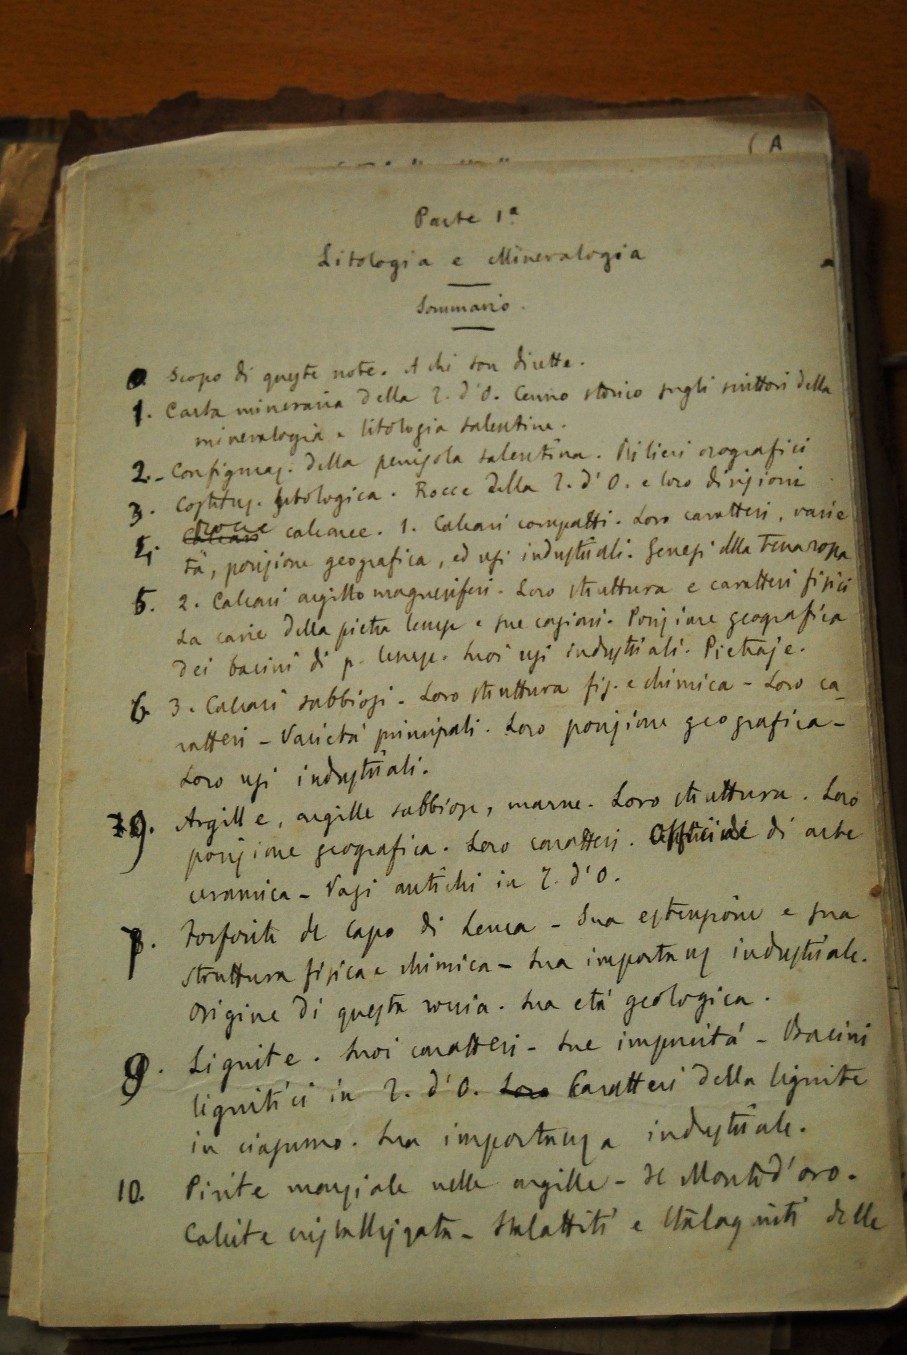 A
Parte 1ª
Litologia e Mineralogia
Sommario.
Scopo di queste note. A chi son dirette.
1. Carta mineraria della T. d'O. Cenno storico sugli scrittori della
mineralogia e litologia salentina.
2.- Configuraz. della penisola salentina. Rilievi orografici
3. Costituz. litologica. Rocce della T. d'O. e loro divisioni
Rocce calcaree. 1. Calcari compatti. Loro caratteri, varie
tà, posizione geografica, ed usi industriali. Genesi della Terra rossa
5. 2. Calcari argillo magnesiferi. Loro struttura e caratteri fisici
La carie della pietra leccese e sue cagioni. Posizione geografica
dei bacini di p. leccese. Suoi usi industriali. Pietraje.
6 3. Calcari sabbiosi. Loro struttura fis. e chimica - Loro ca-
ratteri - Varietà principali. Loro posizione geografica -
Loro usi industriali.
9. Argille, argille sabbiose, marne. Loro struttura. Loro
posizione geografica. Loro caratteri. Officine di arte
ceramica - Vasi antichi in T. d'O.
Fosforiti del Capo di Leuca - Sua estensione e sua
struttura fisica e chimica - Sua importanz industriale.
Origine di questa roccia. Sua età geologica.
8. Lignite. Suoi caratteri - Sue impurità - Bacini
lignitici in T. d'O. Loro Caratteri della lignite
in ciascuno. Sua importanza industriale.
10. Pirite marziale nelle argille - Il Monte d'oro.
Calcite cristallizzata - Stalattiti e stalagmiti delle